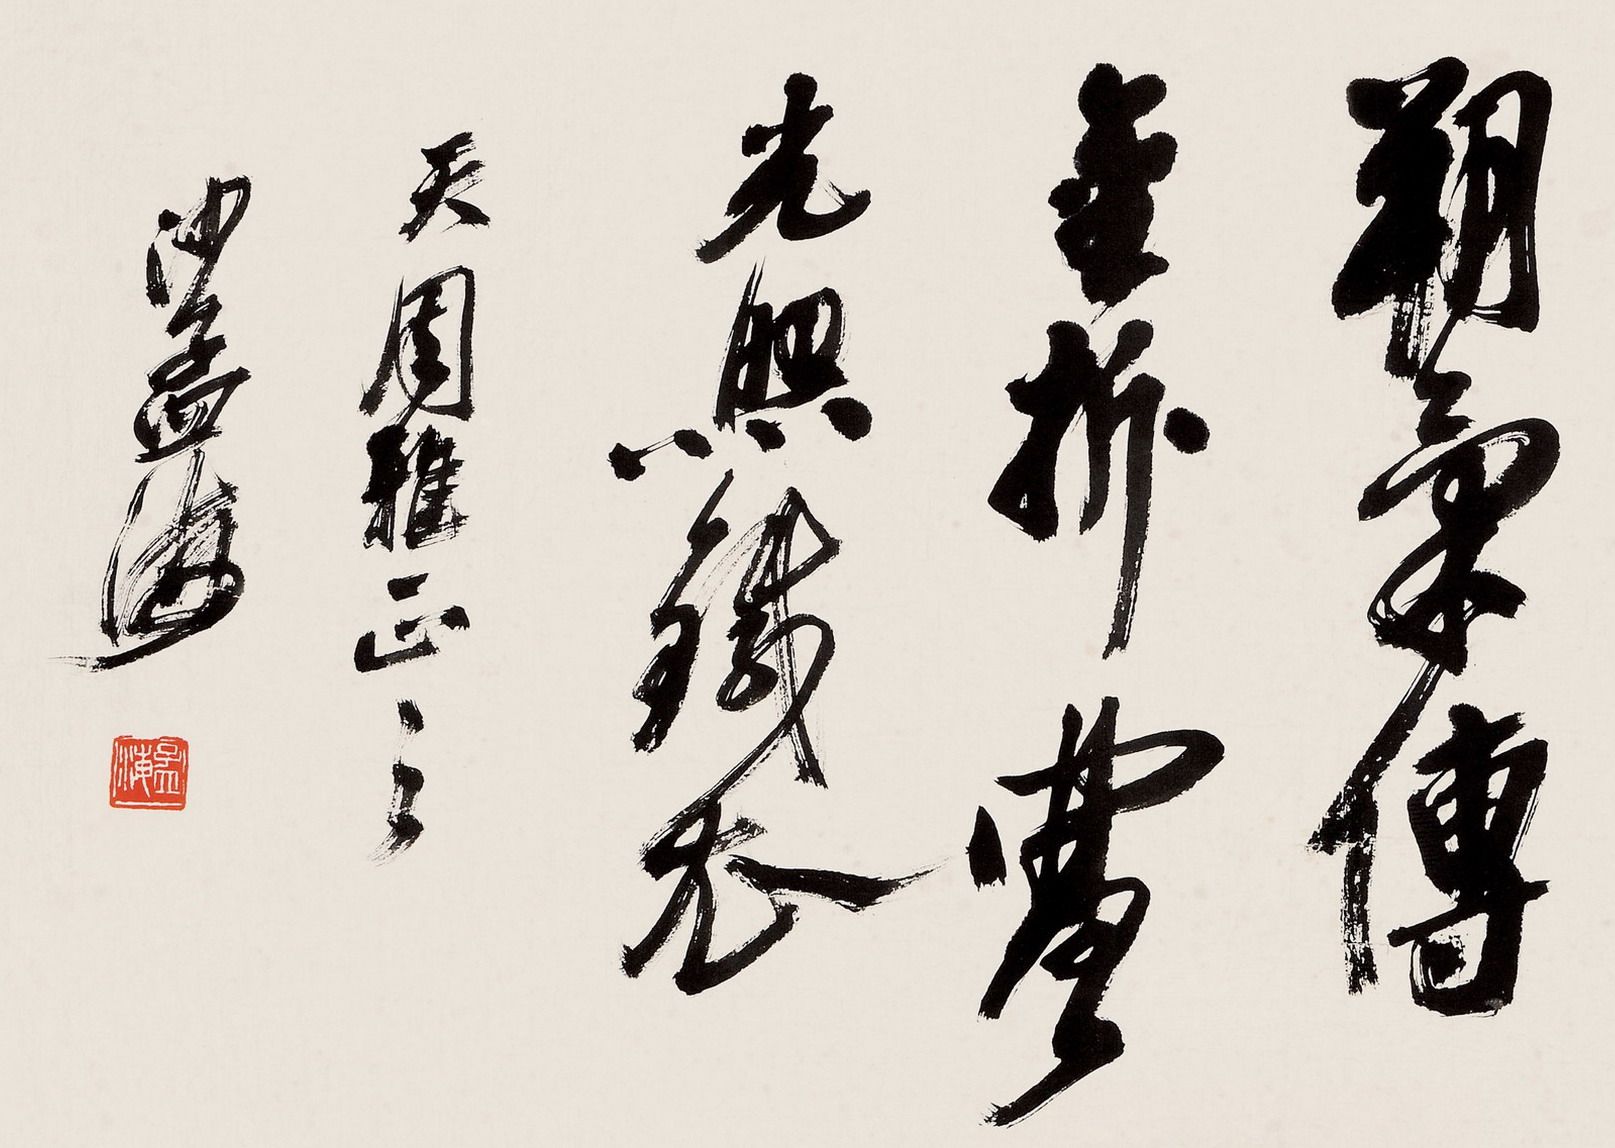 朔氣傳
金柝寒
光照鐵衣
天周雅正之
沙孟海
孟海